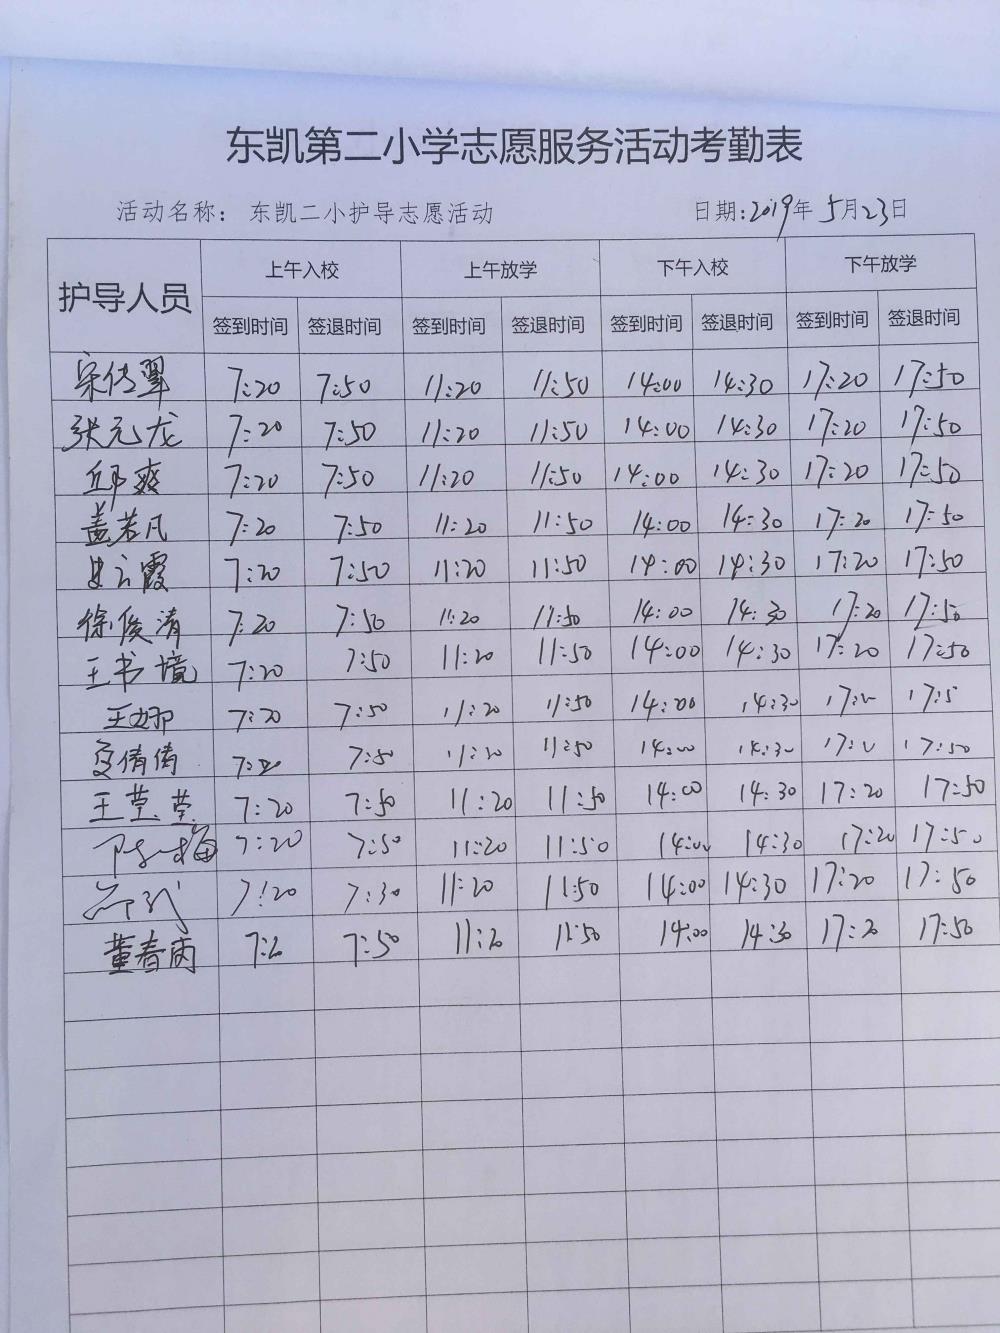 东凯第二小学志愿服务活动考勤表
活动名称： 东凯二小护导志愿活动 日期:2019年5月23日
护导人员 上午入校 上午放学 下午入校 下午放学
签到时间 签退时间 签到时间 签退时间 签到时间 签退时间 签到时间 签退时间
宋传翠 7:20 7:50 11:20 11:50 14:00 14:30 17:20 17:50
张元龙 7:20 7:50 11:20 11:50 14:00 14:30 17:20 17:50
邱爽 7:20 7:50 11:20 11:50 14:00 14:30 17:20 17:50
盖若凡 7:20 7:50 11:20 11:50 14:00 14:30 17:20 17:50
云霞 7:20 7:50 11:20 11:50 14:00 14:30 17:20 17:50
徐俊清 7:20 7:50 11:20 11:50 14:00 14:30 17:20 17:50
王书境 7:20 7:50 11:20 11:50 14:00 14:30 17:20 17:50
王娜 7:20 7:50 11:20 11:50 14:00 14:30 17:2 17:5
倩倩 7:20 7:50 11:20 11:50 14:00 14:30 17:50
王莹莹 7:20 7:50 11:20 11:50 14:00 14:30 17:20 17:50
梅 7:20 7:50 11:20 11:50 14:00 14:30 17:20 17:50
7:20 7:30 11:20 11:50 14:00 14:30 17:20 17:50
董春雨 7:20 7:50 11:20 11:50 14:00 14:30 17:20 17:50